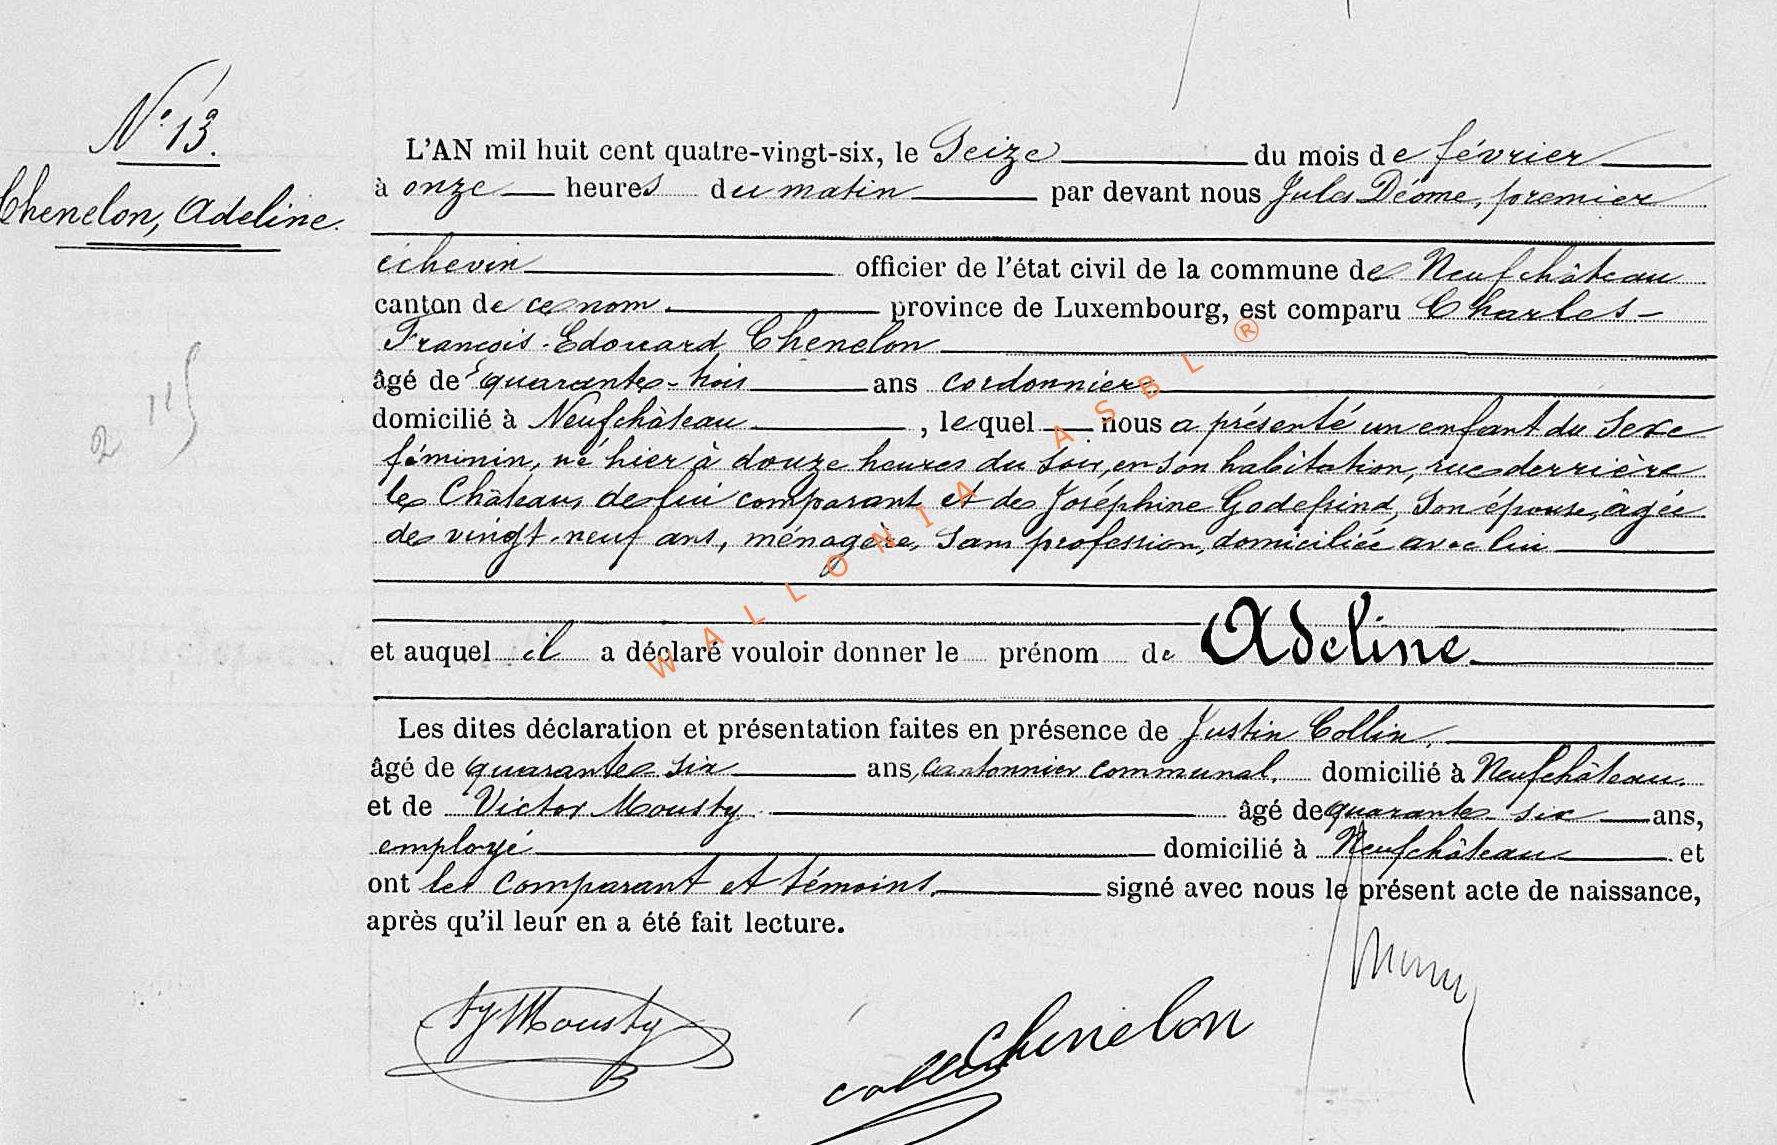 N° 13.
Chenelon, Adeline.
L'AN mil huit cent quatre-vingt-six, le Seize du mois de février
à onze heures du matin par devant nous Jules Déome, premier
échevin officier de l'état civil de la commune de Neufchâteau
canton de ce nom. province de Luxembourg, est comparu Charles-
François-Edouard Chenelon
âgé de quarante-trois ans cordonnier
domicilié à Neufchâteau, lequel nous a présenté un enfant du sexe
féminin, né hier à douze heures du soir, en son habitation, rue derrière
le Château, de lui comparant et de Joséphine Godefrind, son épouse, âgée
de vingt-neuf ans, ménagère, sans profession, domiciliée avec lui
et auquel il a déclaré vouloir donner le prénom de Adeline.
Les dites déclaration et présentation faites en présence de Justin Collin,
âgé de quarante-six ans, cantonnier communal. domicilié à Neufchâteau.
et de Victor Mousty âgé de quarante-six ans,
employé domicilié à Neufchâteau et
ont les comparant et témoins, signé avec nous le présent acte de naissance,
après qu'il leur en a été fait lecture.
Mousty
Chenelon
Collin
WALLONIA ASBL ®